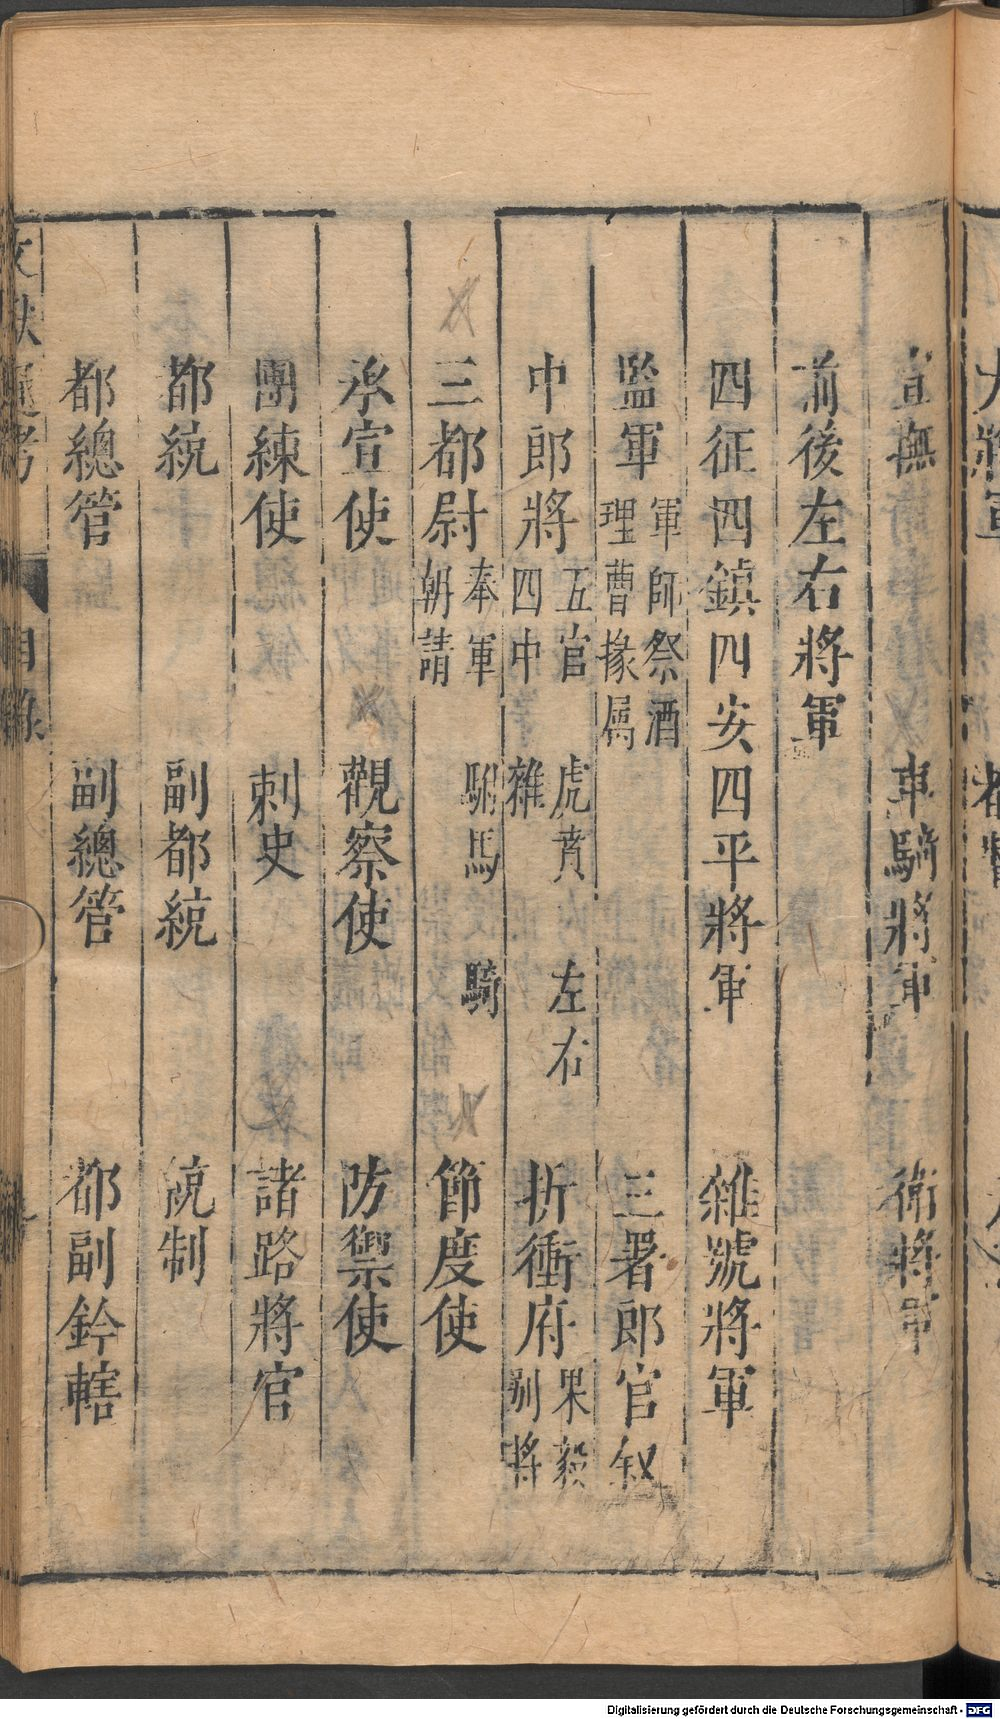 宣撫 車騎將軍 衛將軍
前後左右將軍
四征四鎮四安四平將軍 雜號將軍
監軍 軍師祭酒 理曹掾属 三署郎官叙
中郎將 五官 虎賁 左右 四中 雜 折衝府 果毅 别將
三都尉 奉軍 駙馬 騎 朝請 節度使
承宣使 觀察使 防禦使
團練使 刺史 諸路將官
都統 副都統 統制
都總管 副總管 都副鈐轄
文獻通考 目錄
Digitalisierung gefördert durch die Deutsche Forschungsgemeinschaft - DFG